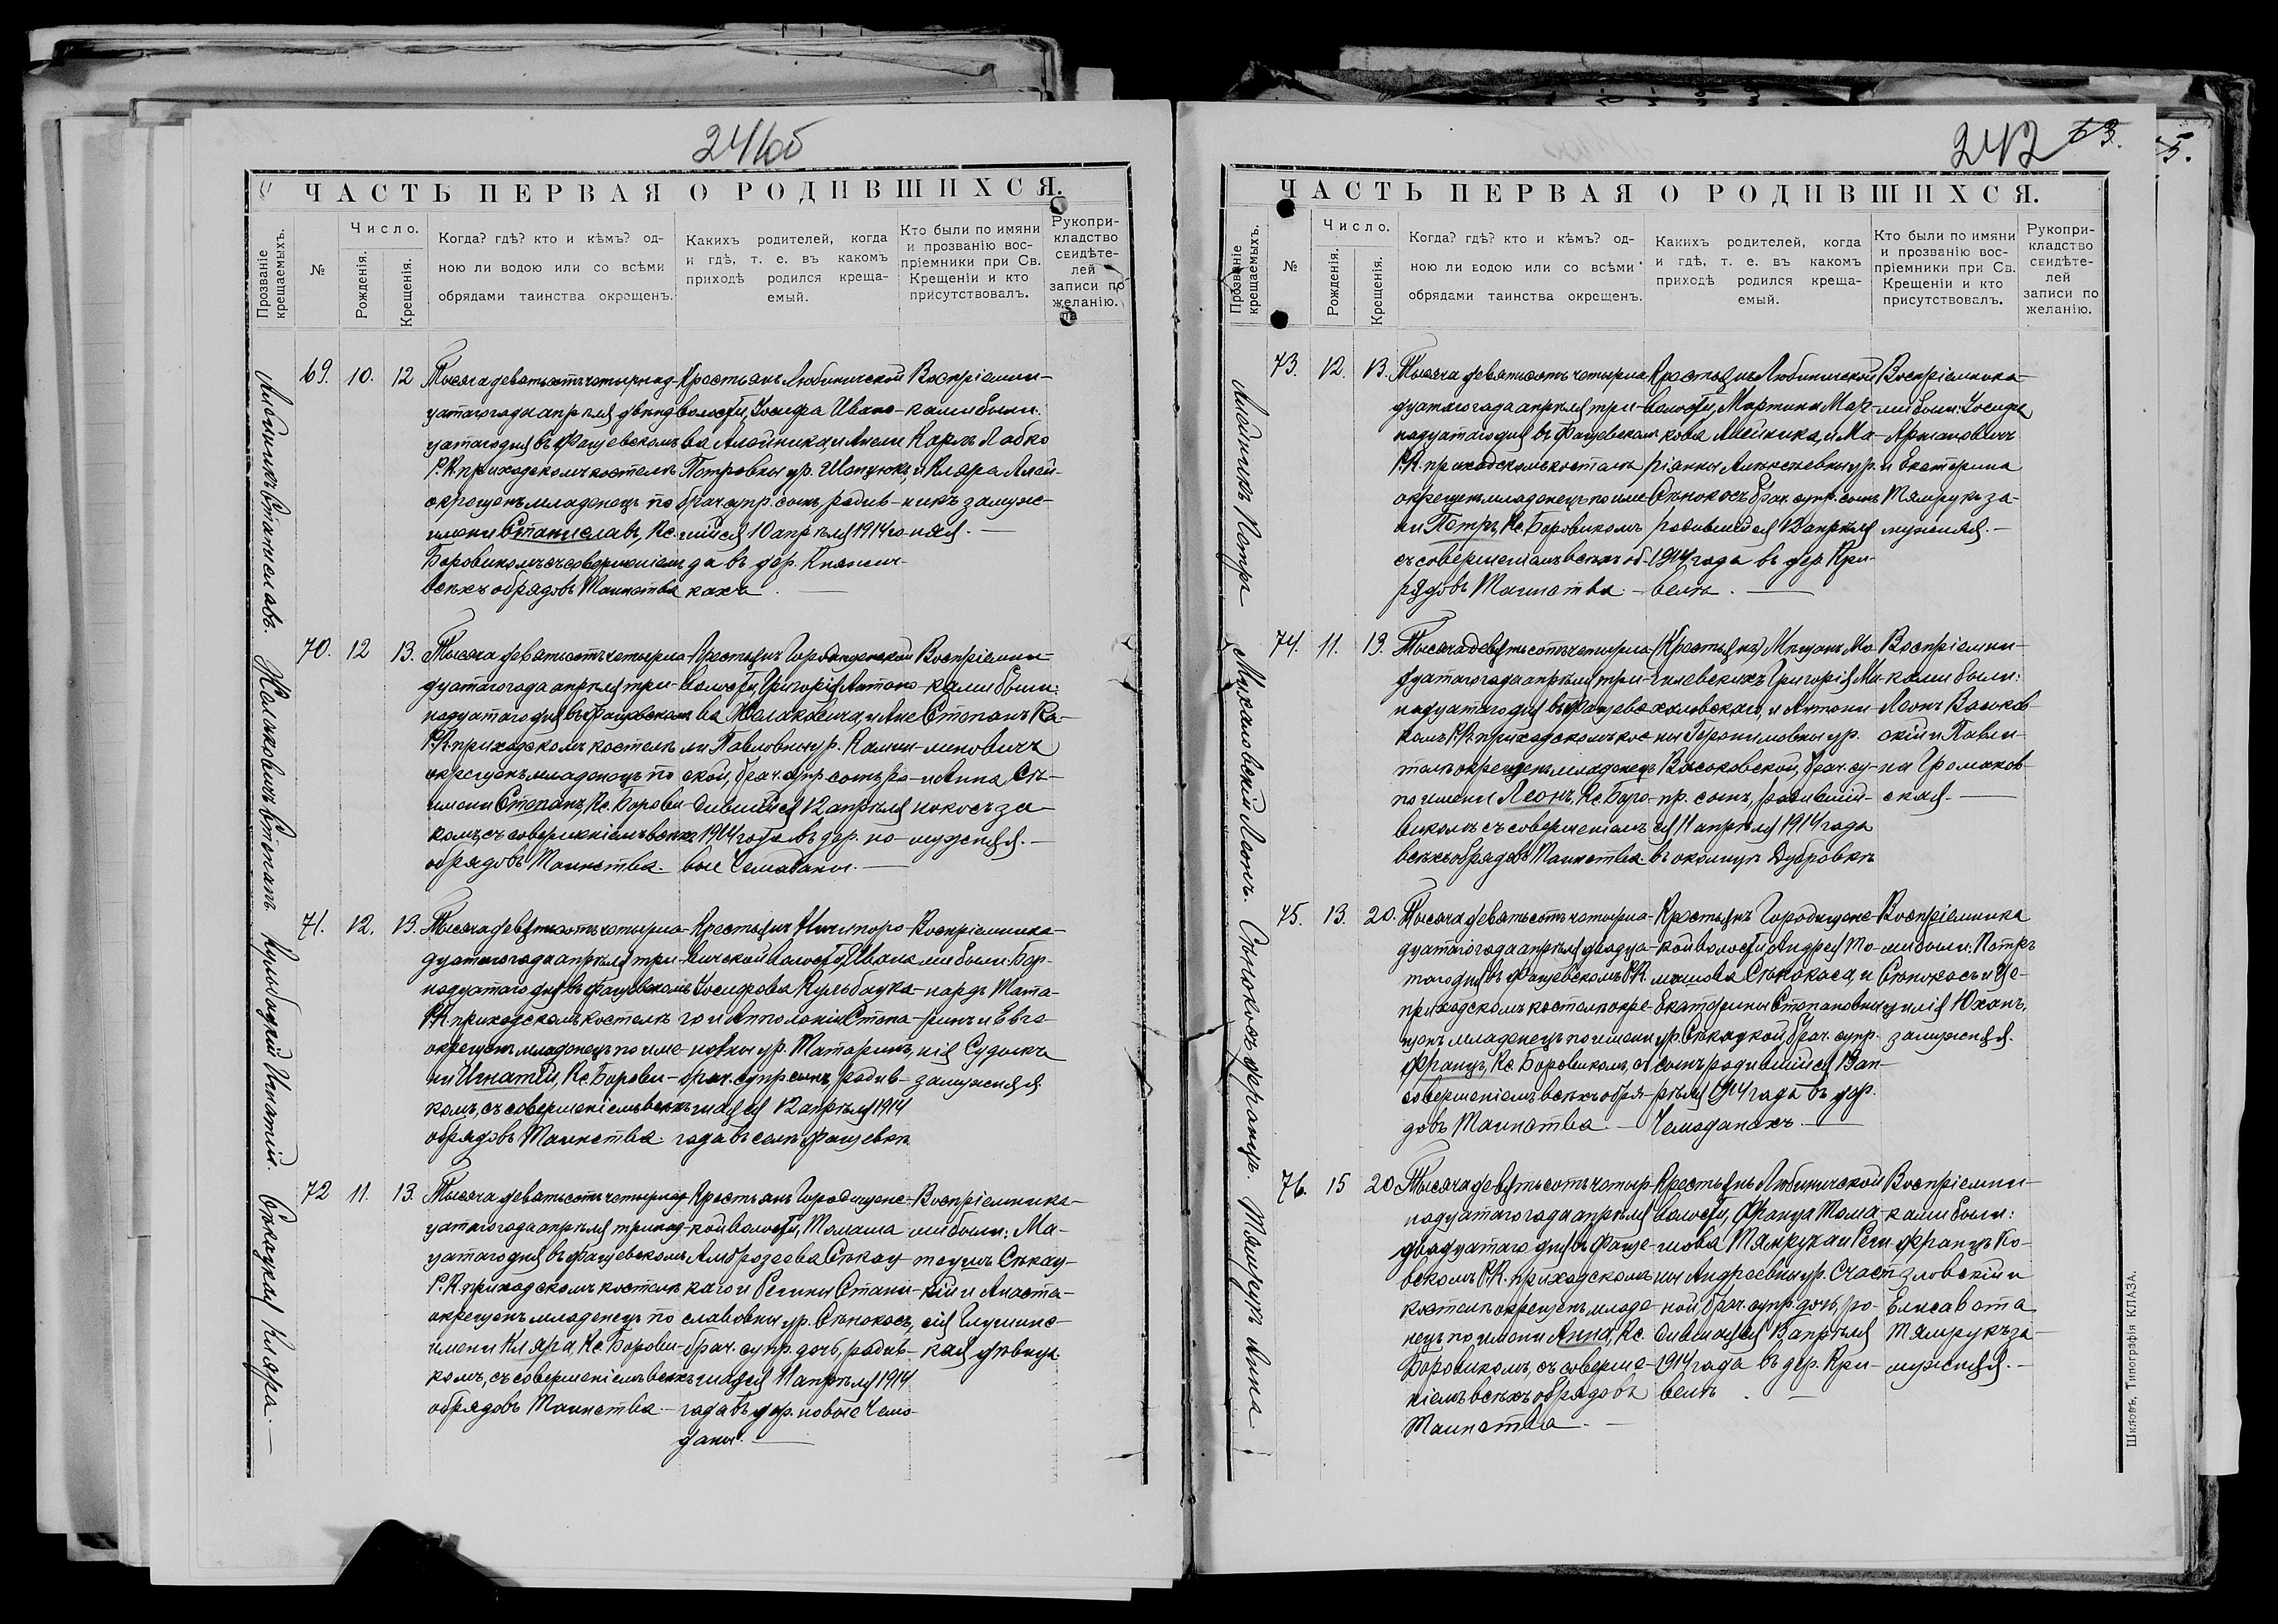 241об
ЧАСТЬ ПЕРВАЯ О РОДИВШИХСЯ.
Прозваніе крещаемыхъ.
№
Число.
Рожденія.
Крещенія.
Когда? гдѣ? кто и кѣмъ? од-
ною ли водою или со всѣми
обрядами таинства окрещенъ.
Какихъ родителей, когда
и гдѣ, т. е. въ какомъ
приходѣ родился креща-
емый.
Кто были по имяни
и прозванію вос-
пріемники при Св.
Крещеніи и кто
присутствовалъ.
Рукопри-
кладство
свидѣте-
лей
записи по
желанію.
Алейникъ Станиславъ.
69. 10. 12
Тысяча девятьсотъ четырнад-
цатаго года апрѣля двѣнад
цатаго дня въ Фащевскомъ
Р.К. приходскомъ костелѣ
окрещенъ младенецъ по
имени Станиславъ, Кс.
Боровикомъ съ совершеніем
всѣхъ обрядовъ Таинства
Крестьянъ Любиничской
волости, Іосифа Ивано-
ва Алейника, и Анели
Петровны ур.
брач. супр. сынъ, родив-
шійся 10 апрѣля 1914 го
да въ дер. Княжи-
кахъ.
Воспріемни-
ками были:
Карлъ Лобко
и Кляра Алей-
никъ замуж-
няя.
Жолаковичъ Степанъ.
70. 12 13.
Тысяча девятьсотъ четырна-
дцатаго года апрѣля три-
надцатаго дня въ Фащевском
Р.К. приходскомъ костелѣ
окрещенъ младенецъ по
имени Степанъ, Кс. Борови
комъ, съ совершеніемъ всѣхъ
обрядовъ Таинства.
Крестьянъ Городищенской
волости, Григорія Антоно-
ва Жолаковича, и Ане
ли Павловны ур. Калин-
ской, брач. супр. сынъ, ро-
дившійся 12 апрѣля
1914 года въ дер. но-
вые Чемоданы.
Воспріемни-
ками были:
Степанъ Ка-
линовичъ
и Анна Сѣ-
нокосъ за-
мужняя.
Кульбацкій Игнатій.
71. 12. 13.
Тысяча девятьсотъ четырна-
дцатаго года апрѣля три-
надцатаго дня въ Фащевскомъ
Р.К. приходскомъ костелѣ
окрещенъ младенецъ по име-
ни Игнатій, Кс. Борови-
комъ, съ совершеніемъ всѣхъ
обрядовъ Таинства.
Крестьянъ
волости, Ивана
Іосифова Кульбацка-
го и Апполоніи Степа-
новны ур. Татаринъ,
брач. супр. сынъ, родив-
шійся 12 апрѣля 1914
года въ селѣ Фащевкѣ
Воспріемника-
ми были: Бер-
нардъ Тата-
ринъ и Евге-
нія
замужняя
Сѣкацкая Кляра.
72 11. 13.
Тысяча девятьсотъ четырнад
цатаго года апрѣля тринад-
цатаго дня въ Фащевскомъ
Р.К. приходскомъ костелѣ
окрещенъ младенецъ по
имени Кляра, Кс. Борови-
комъ, съ совершеніемъ всѣхъ
обрядовъ Таинства.
Крестьянъ Городищенс-
кой волости, Томаша
Амброзеева Сѣкац-
каго и Регины Стани-
славовны ур. Сѣнокосъ,
брач. супр. дочь, родив-
шаяся 11 апрѣля 1914
года въ дер. новые Чемо-
даны.
Воспріемника-
ми были: Ма-
теушъ Сѣкац-
кій и Анаста-
сія Глушинс-
кая дѣвица.
242 63.
5.
ЧАСТЬ ПЕРВАЯ О РОДИВШИХСЯ.
Прозваніе крещаемыхъ.
№
Число.
Рожденія.
Крещенія.
Когда? гдѣ? кто и кѣмъ? од-
ною ли водою или со всѣми
обрядами таинства окрещенъ.
Какихъ родителей, когда
и гдѣ, т. е. въ какомъ
приходѣ родился креща-
емый.
Кто были по имяни
и прозванію вос-
пріемники при Св.
Крещеніи и кто
присутствовалъ.
Рукопри-
кладство
свидѣте-
лей
записи по
желанію.
Алейникъ Петръ
73. 12. 13.
Тысяча девятьсотъ четырна
дцатаго года апрѣля три-
надцатаго дня въ Фащевском
Р.К. приходскомъ костелѣ
окрещенъ младенецъ по име
ни Петръ, Кс. Боровикомъ
съ совершеніемъ всѣхъ об-
рядовъ Таинства.
Крестьянъ Любиничской
волости, Мартина Мар-
кова Алейника, и Ма-
ріанны Алексѣевны ур.
Сѣнокосъ брач. супр. сынъ
родившійся 12 апрѣля
1914 года въ дер. Кри-
велѣ.
Воспріемника-
ми были: Іосифъ
Аржановичъ
и Екатерина
Тямрукъ за-
мужняя.
Михаловскій Леонъ.
74. 11. 13.
Тысяча девятьсотъ четырна
дцатаго года апрѣля три-
надцатаго дня въ Фащевс
комъ Р.К. приходскомъ кос
телѣ окрещенъ младенецъ
по имени Леонъ, Кс. Боро-
викомъ съ совершеніемъ
всѣхъ обрядовъ Таинства.
(Крестьянъ) Мѣщанъ Мо
гилевскихъ Григорія Ми-
халовскаго, и Антони
ны Геронимовны ур.
Васьковской, брач. су-
пр. сынъ, родившій-
ся 11 апрѣля 1914 года
въ околицѣ Дубровкѣ
Воспріемни-
ками были:
Леонъ Васьков
скій и Павли-
на Громаков
ская.
Сѣнокосъ Францъ.
75. 13. 20.
Тысяча девятьсотъ четырна-
дцатаго года апрѣля двадца-
таго дня въ Фащевскомъ Р.К.
приходскомъ костелѣ окре-
щенъ младенецъ по имени
Францъ, Кс. Боровикомъ, съ
совершеніемъ всѣхъ обря-
довъ Таинства.
Крестьянъ Городищенс-
кой волости, Андрея То-
машова Сѣнокоса, и
Екатерины Степановны
ур. Сѣкацкой, брач. супр.
сынъ родившійся 13 ап-
рѣля 1914 года въ дер.
Чемоданахъ.
Воспріемника
ми были: Петръ
Сѣнокосъ и Це-
цилія Юханъ,
замужняя.
Тамрукъ Анна
76. 15 20
Тысяча девятьсотъ четыр-
надцатаго года апрѣля
двадцатаго дня въ Фаще-
вскомъ Р.К. приходскомъ
костелѣ окрещенъ младе
нецъ по имени Анна, Кс.
Боровикомъ, съ соверше-
ніемъ всѣхъ обрядовъ
Таинства.
Крестьянъ Любиничской
волости, Франца Тома-
шова Тямрука и Реги-
ны Андреевны ур. Счаст
ной брач. супр. дочь, ро-
дившаяся апрѣля
1914 года въ дер. Кри-
велѣ.
Воспріемни-
ками были:
Францъ Ко-
зловскій и
Елисавета
Тямрукъ за-
мужняя.
Шкловъ, Типографія КЛАЗА.